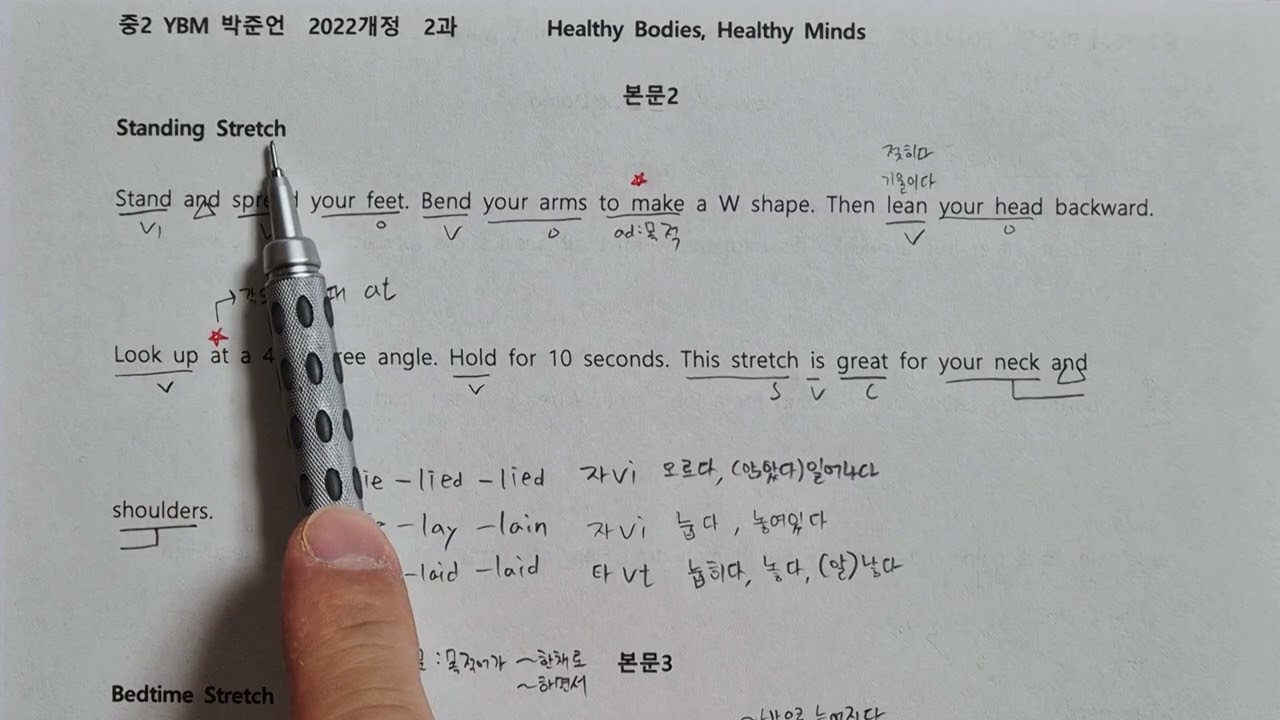 중2 YBM 박준언 2022개정 2과 Healthy Bodies, Healthy Minds
본문2
Standing Stretch
젖히다
기울이다
Stand and your feet. Bend your arms to make a W shape. Then lean your head backward.
V1 O V O ad:목적 V O
at
Look up at a angle. Hold for 10 seconds. This stretch is great for your neck and
V V S V C
-lied -lied 자vi
shoulders.
-lay -lain 자vi 눕다, 놓여있다
-laid -laid 타vt 눕히다, 놓다, (알)낳다
:목적어가 ~한채로 본문3
~하면서
Bedtime Stretch